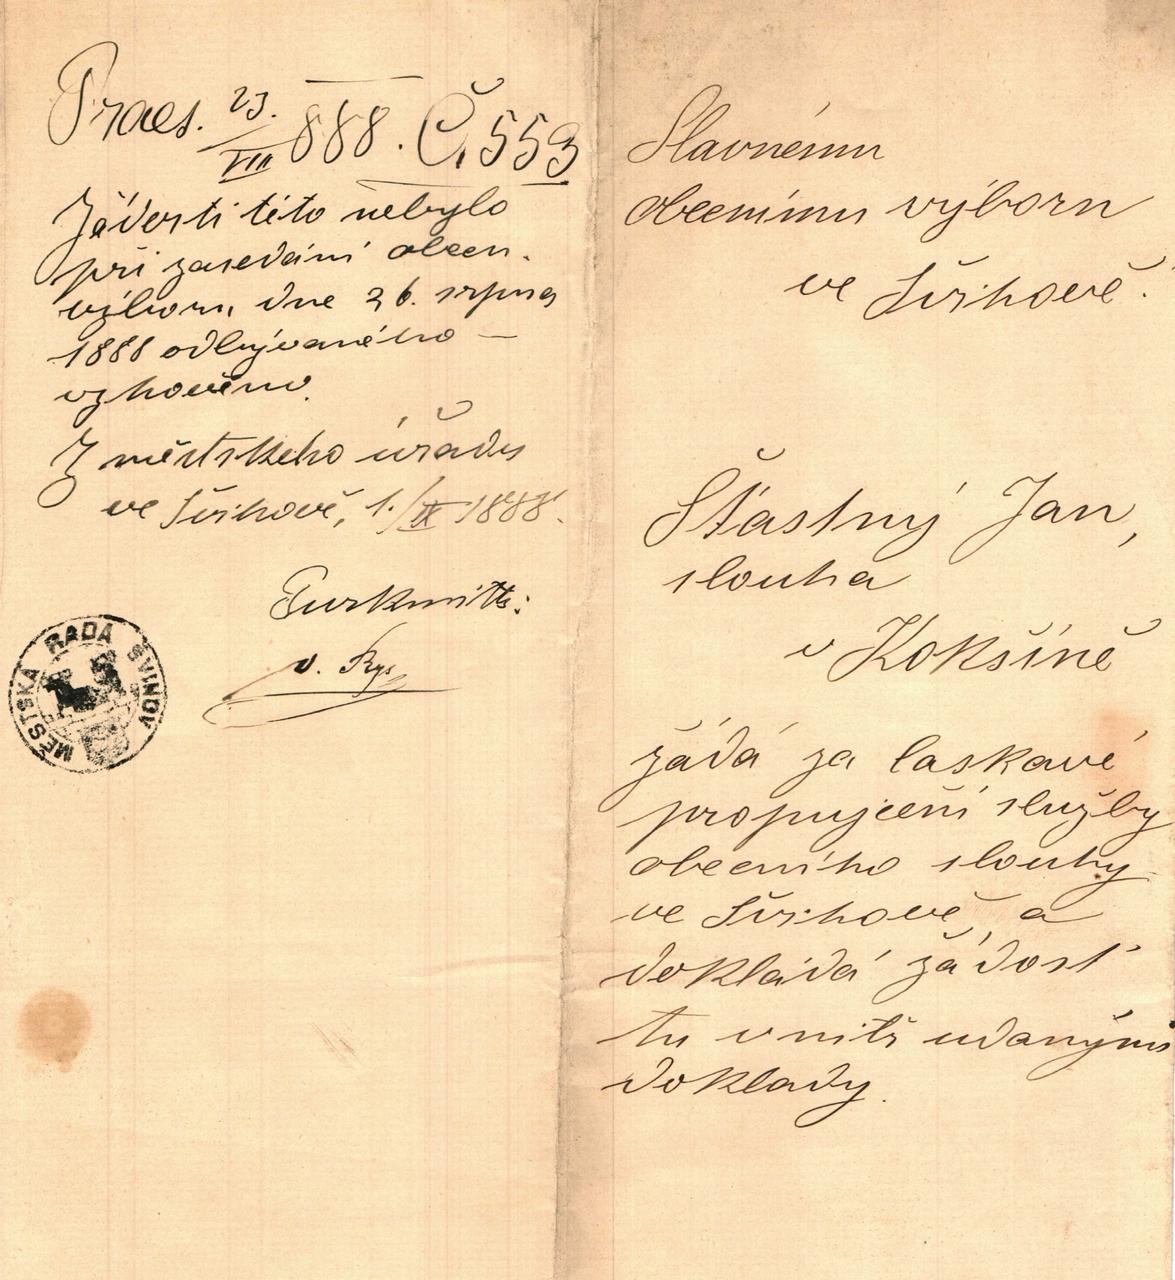 Praes. 23./VIII 888. Č. 553
Žádosti této nebylo
při zasedání obecn.
výboru, dne 26. srpna
1888 odbývaného –
vyhověno.
Z městského úřadu
ve Švihově, 1./IX 1888.
Purkmistr:
v. Rys
MĚSTSKÁ RADA ŠVIHOV
Slavnému
obecnímu výboru
ve Švihově.
Šťastný Jan,
slouha
v Kokšíně
žádá za laskavé
propujčení služby
obecního slouhy
ve Švihově, a
dokládá žádost
tu vnitř udanými
doklady.